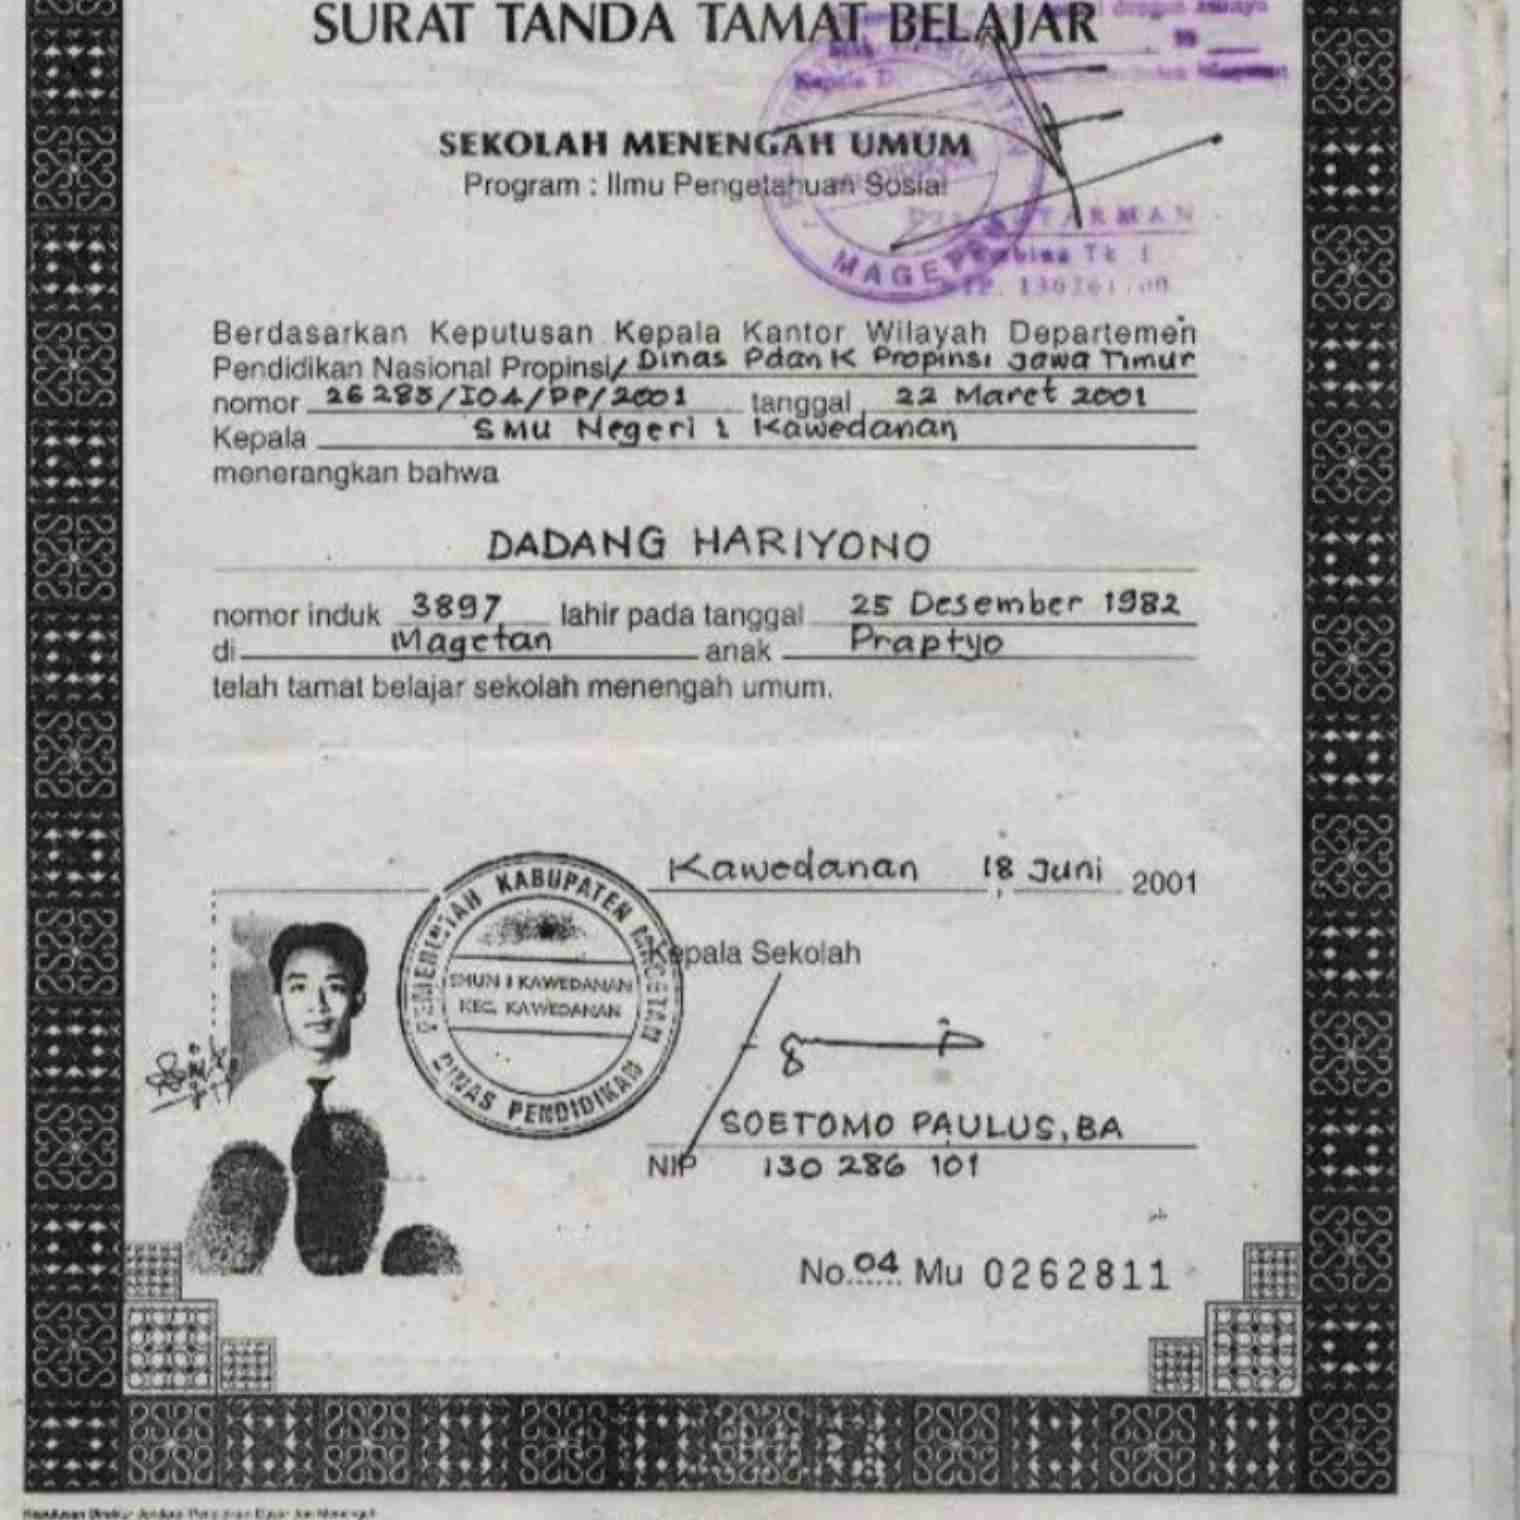 SURAT TANDA TAMAT BELAJAR
SEKOLAH MENENGAH UMUM
Program : Ilmu Pengetahuan Sosial
MAGETAN
Berdasarkan Keputusan Kepala Kantor Wilayah Departemen
Pendidikan Nasional Propinsi/ Dinas P dan K Propinsi Jawa Timur
nomor 26283/I04/PP/2001 tanggal 22 Maret 2001
Kepala SMU Negeri 1 Kawedanan
menerangkan bahwa
DADANG HARIYONO
nomor induk 3897 lahir pada tanggal 25 Desember 1982
di Magetan anak Praptyo
telah tamat belajar sekolah menengah umum.
Kawedanan, 18 Juni 2001
PEMERINTAH KABUPATEN MAGETAN
SMUN 1 KAWEDANAN
KEC. KAWEDANAN
DINAS PENDIDIKAN
Kepala Sekolah
SOETOMO PAULUS, BA
NIP 130 286 101
No. 04 Mu 0262811